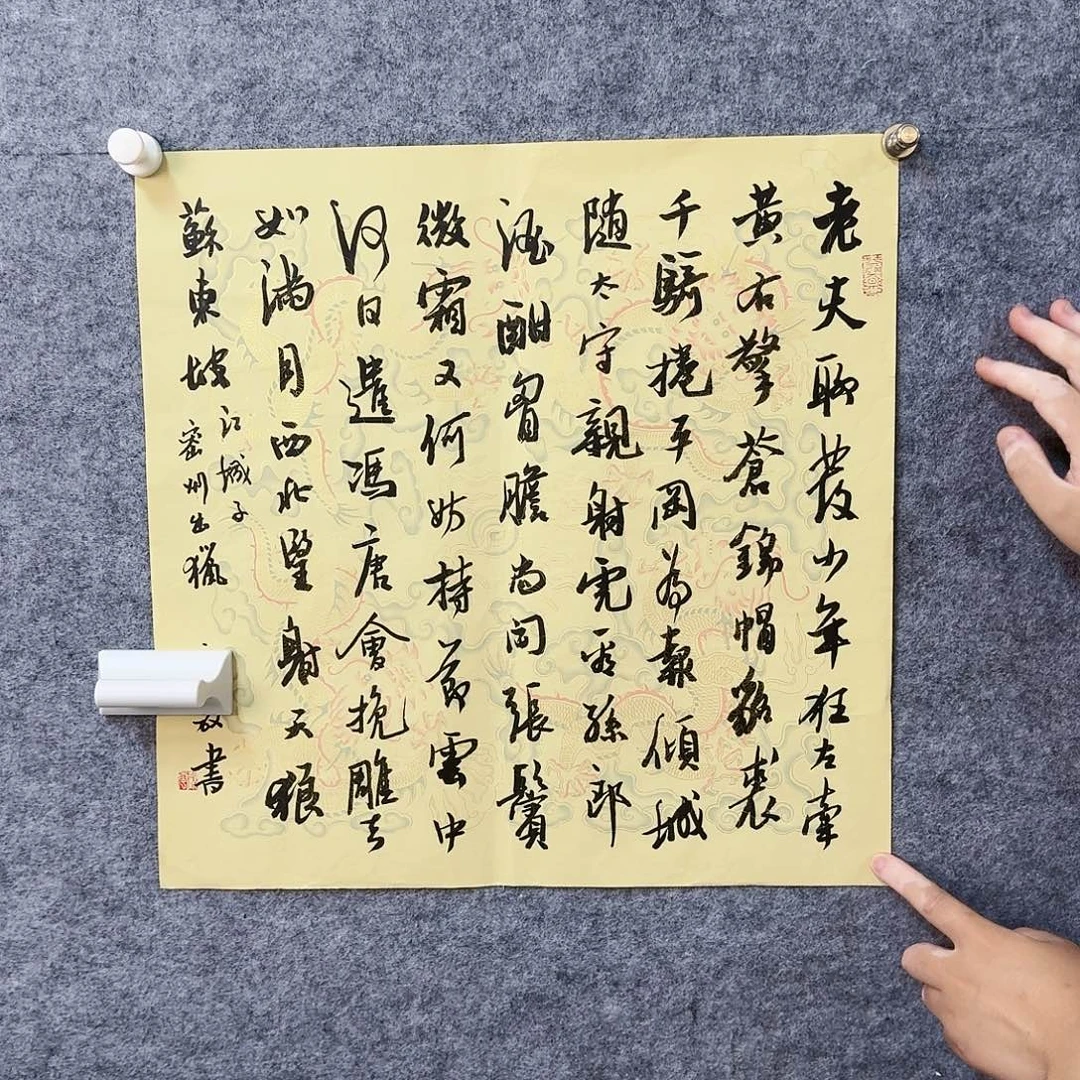 老夫聊發少年狂左牽
黃右擎蒼錦帽貂裘
千騎捲平岡為報傾城
隨太守親射虎看孫郎
酒酣胷膽尚開張鬢
微霜又何妨持節雲中
何日遣馮唐會挽雕弓
如滿月西北望射天狼
蘇東坡
江城子
密州出獵
書